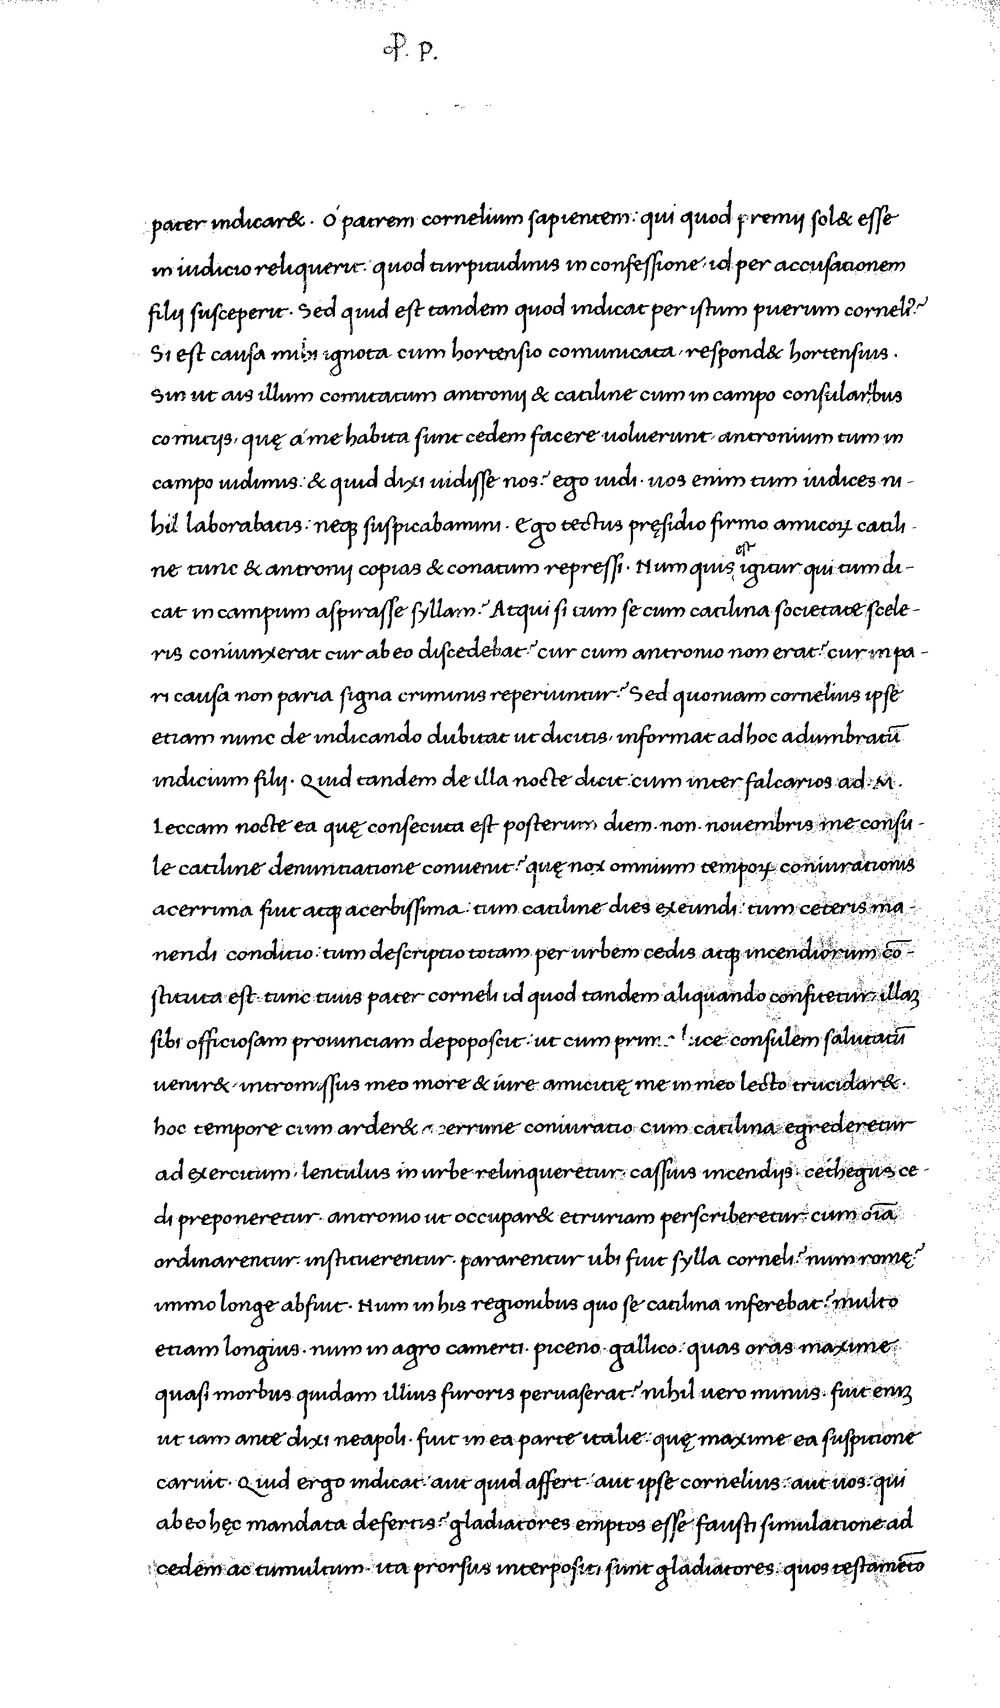 P. p.
pater indicar&. O patrem cornelium sapientem: qui quod premij sol& esse
in iudicio reliquerit: quod turpitudinis in confessione, id per accusationem
filij susceperit. Sed quid est tandem quod indicat per istum puerum corneli?
Si est causa mihi ignota cum hortensio comunicata, respond& hortensius.
Sin ut ais illum comitatum antronij & catiline cum in campo consularibus
comitijs, quę a me habita sunt cedem facere uoluerunt, antronium tum in
campo uidimus: & quid dixi uidisse nos? ego uidi. uos enim tum iudices ni-
hil laborabatis: neqꝫ suspicabamini. Ego tectus pręsidio firmo amicoꝝ catili-
ne tunc & antronij copias & conatum repressi. Num quis est igitur qui tum di-
cat in campum aspirasse syllam? Atqui si tum se cum catilina societate scele-
ris coniunxerat cur ab eo discedebat? cur cum antronio non erat? cur in pa-
ri causa non paria signa criminis reperiuntur? Sed quoniam cornelius ipse
etiam nunc de indicando dubitat ut dicitis, informat ad hoc adumbratū
indicium filij. Quid tandem de illa nocte dicit cum inter falcarios ad .M.
Leccam nocte ea quę consecuta est posterum diem. non. nouembris me consu-
le catiline denuntiatione conuenit? quę nox omnium tempoꝝ coniurationis
acerrima fuit atqꝫ acerbissima. tum catiline dies exeundi: tum ceteris ma-
nendi conditio: tum descriptio totam per urbem cedis atqꝫ incendiorum cō-
stituta est. tunc tuus pater corneli id quod tandem aliquando confitetur, illaꝫ
sibi officiosam prouinciam depoposcit: ut cum prim luce consulem salutatū
uenir& intromissus meo more & iure amicitię me in meo lecto trucidar&.
hoc tempore cum arder& acerrime coniuratio cum catilina egrederetur
ad exercitum, lentulus in urbe relinqueretur. cassius incendijs. cethegus ce-
di preponeretur. antronio ut occupar& etruriam perscriberetur. cum oīa
ordinarentur. instituerentur. pararentur ubi fuit sylla corneli? num romę?
immo longe abfuit. Num in his regionibus quo se catilina inferebat? multo
etiam longius. num in agro camerti. piceno. gallico: quas oras maxime
quasi morbus quidam illius furoris peruaserat? nihil uero minus. fuit eniꝫ
ut iam ante dixi neapoli. fuit in ea parte italie: quę maxime ea suspitione
caruit. Quid ergo indicat: aut quid affert: aut ipse cornelius: aut uos: qui
ab eo hęc mandata defertis? gladiatores emptos esse fausti simulatione ad
cedem ac tumultum. ita prorsus interpositi sunt gladiatores. quos testamēto